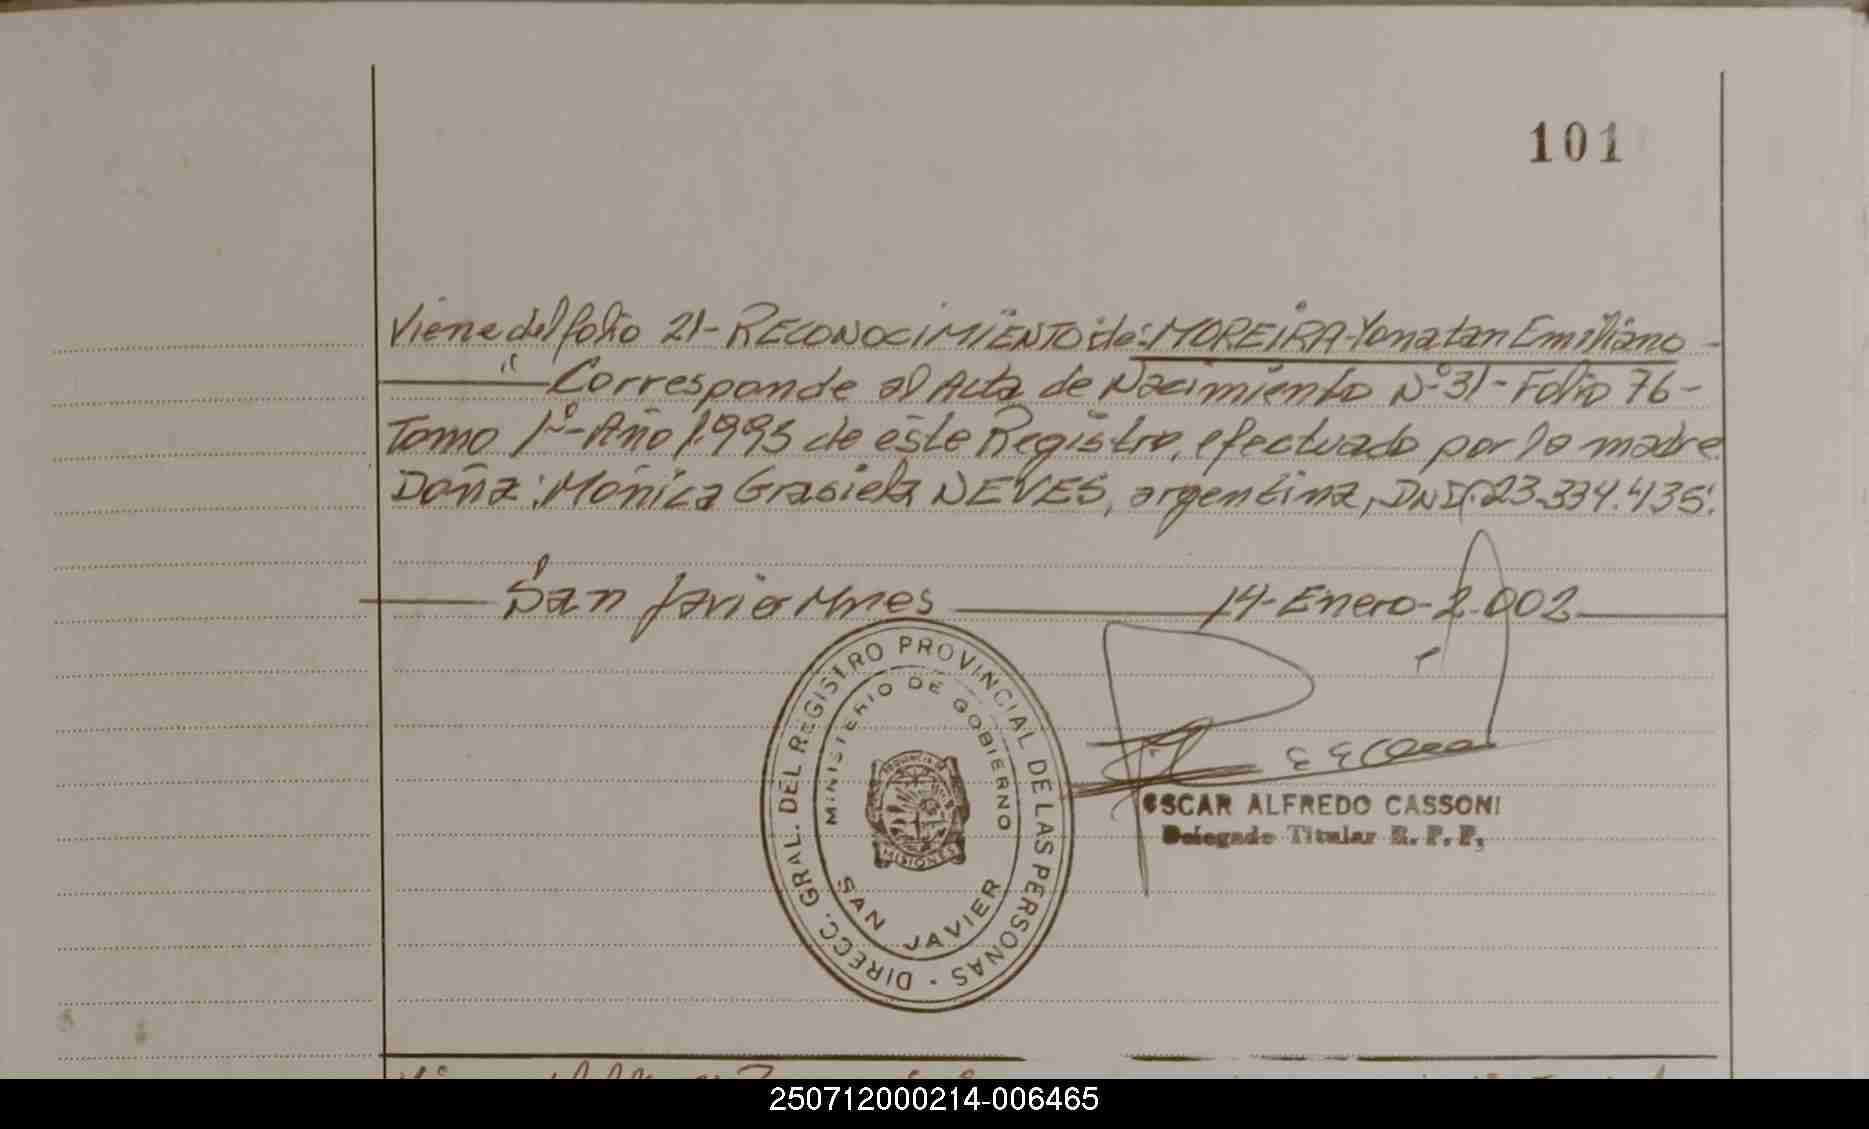 101
Viene del folio 21- RECONOCIMIENTO de: MOREIRA Yonatan Emiliano -
Corresponde al Acta de Nacimiento Nº 31- Folio 76 -
Tomo 1º- Año 1.993 de este Registro, efectuado por la madre
Doña: Mónica Grasiela NEVES, argentina, DNI. 23.334.435.
San Javier Mnes 14- Enero- 2.002
DIRECC. GRAL. DEL REGISTRO PROVINCIAL DE LAS PERSONAS -
MINISTERIO DE GOBIERNO
PROVINCIA DE
MISIONES
SAN JAVIER
OSCAR ALFREDO CASSONI
Delegado Titular R. P. P.
250712000214-006465